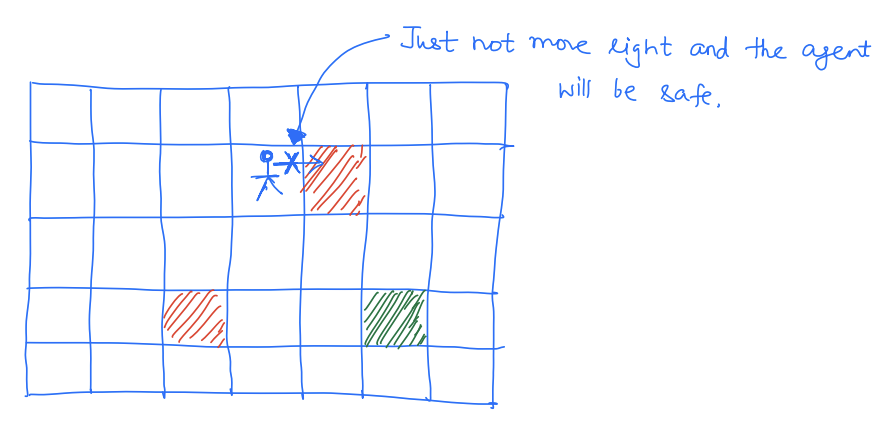 Just not move right and the agent
will be safe.